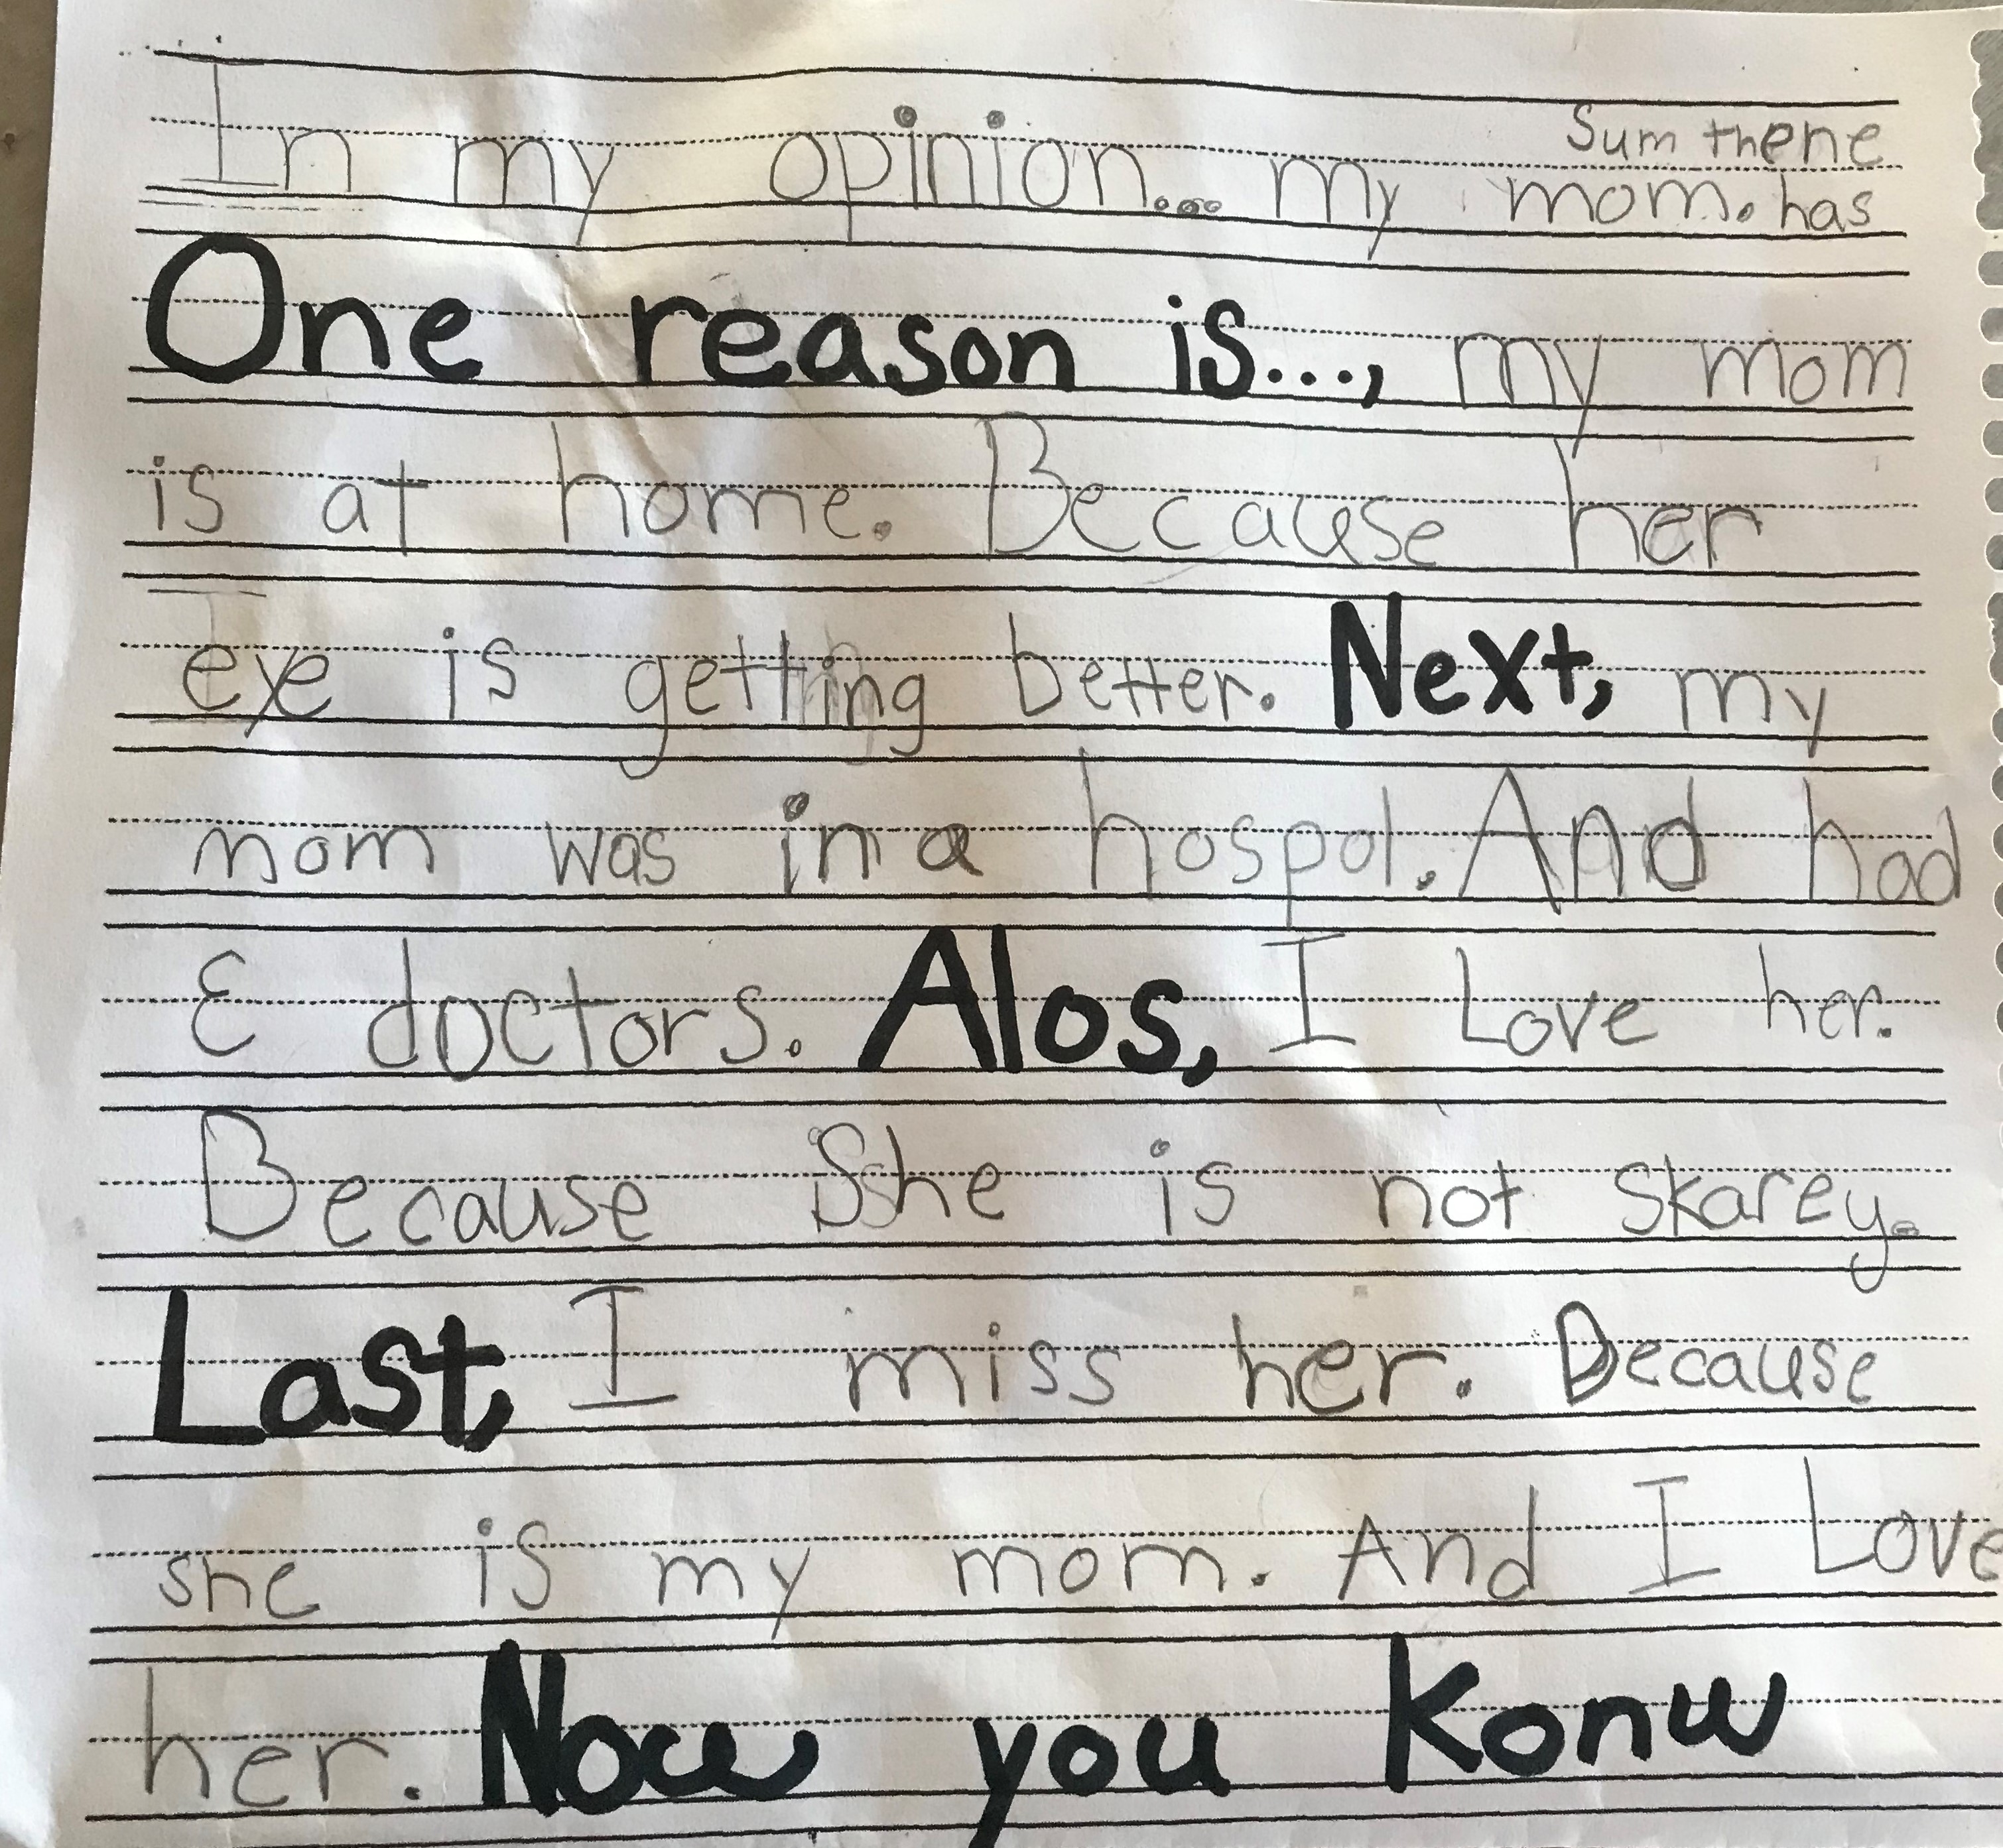 In my opinion... my mom. has
Sum thene
One reason is..., my mom
is at home. Because her
eye is getting better. Next, my
mom was in a hospol. And had
3 doctors. Alos, I Love her.
Because She is not skarey.
Last, I miss her. Because
she is my mom. And I Love
her. Now you Konw